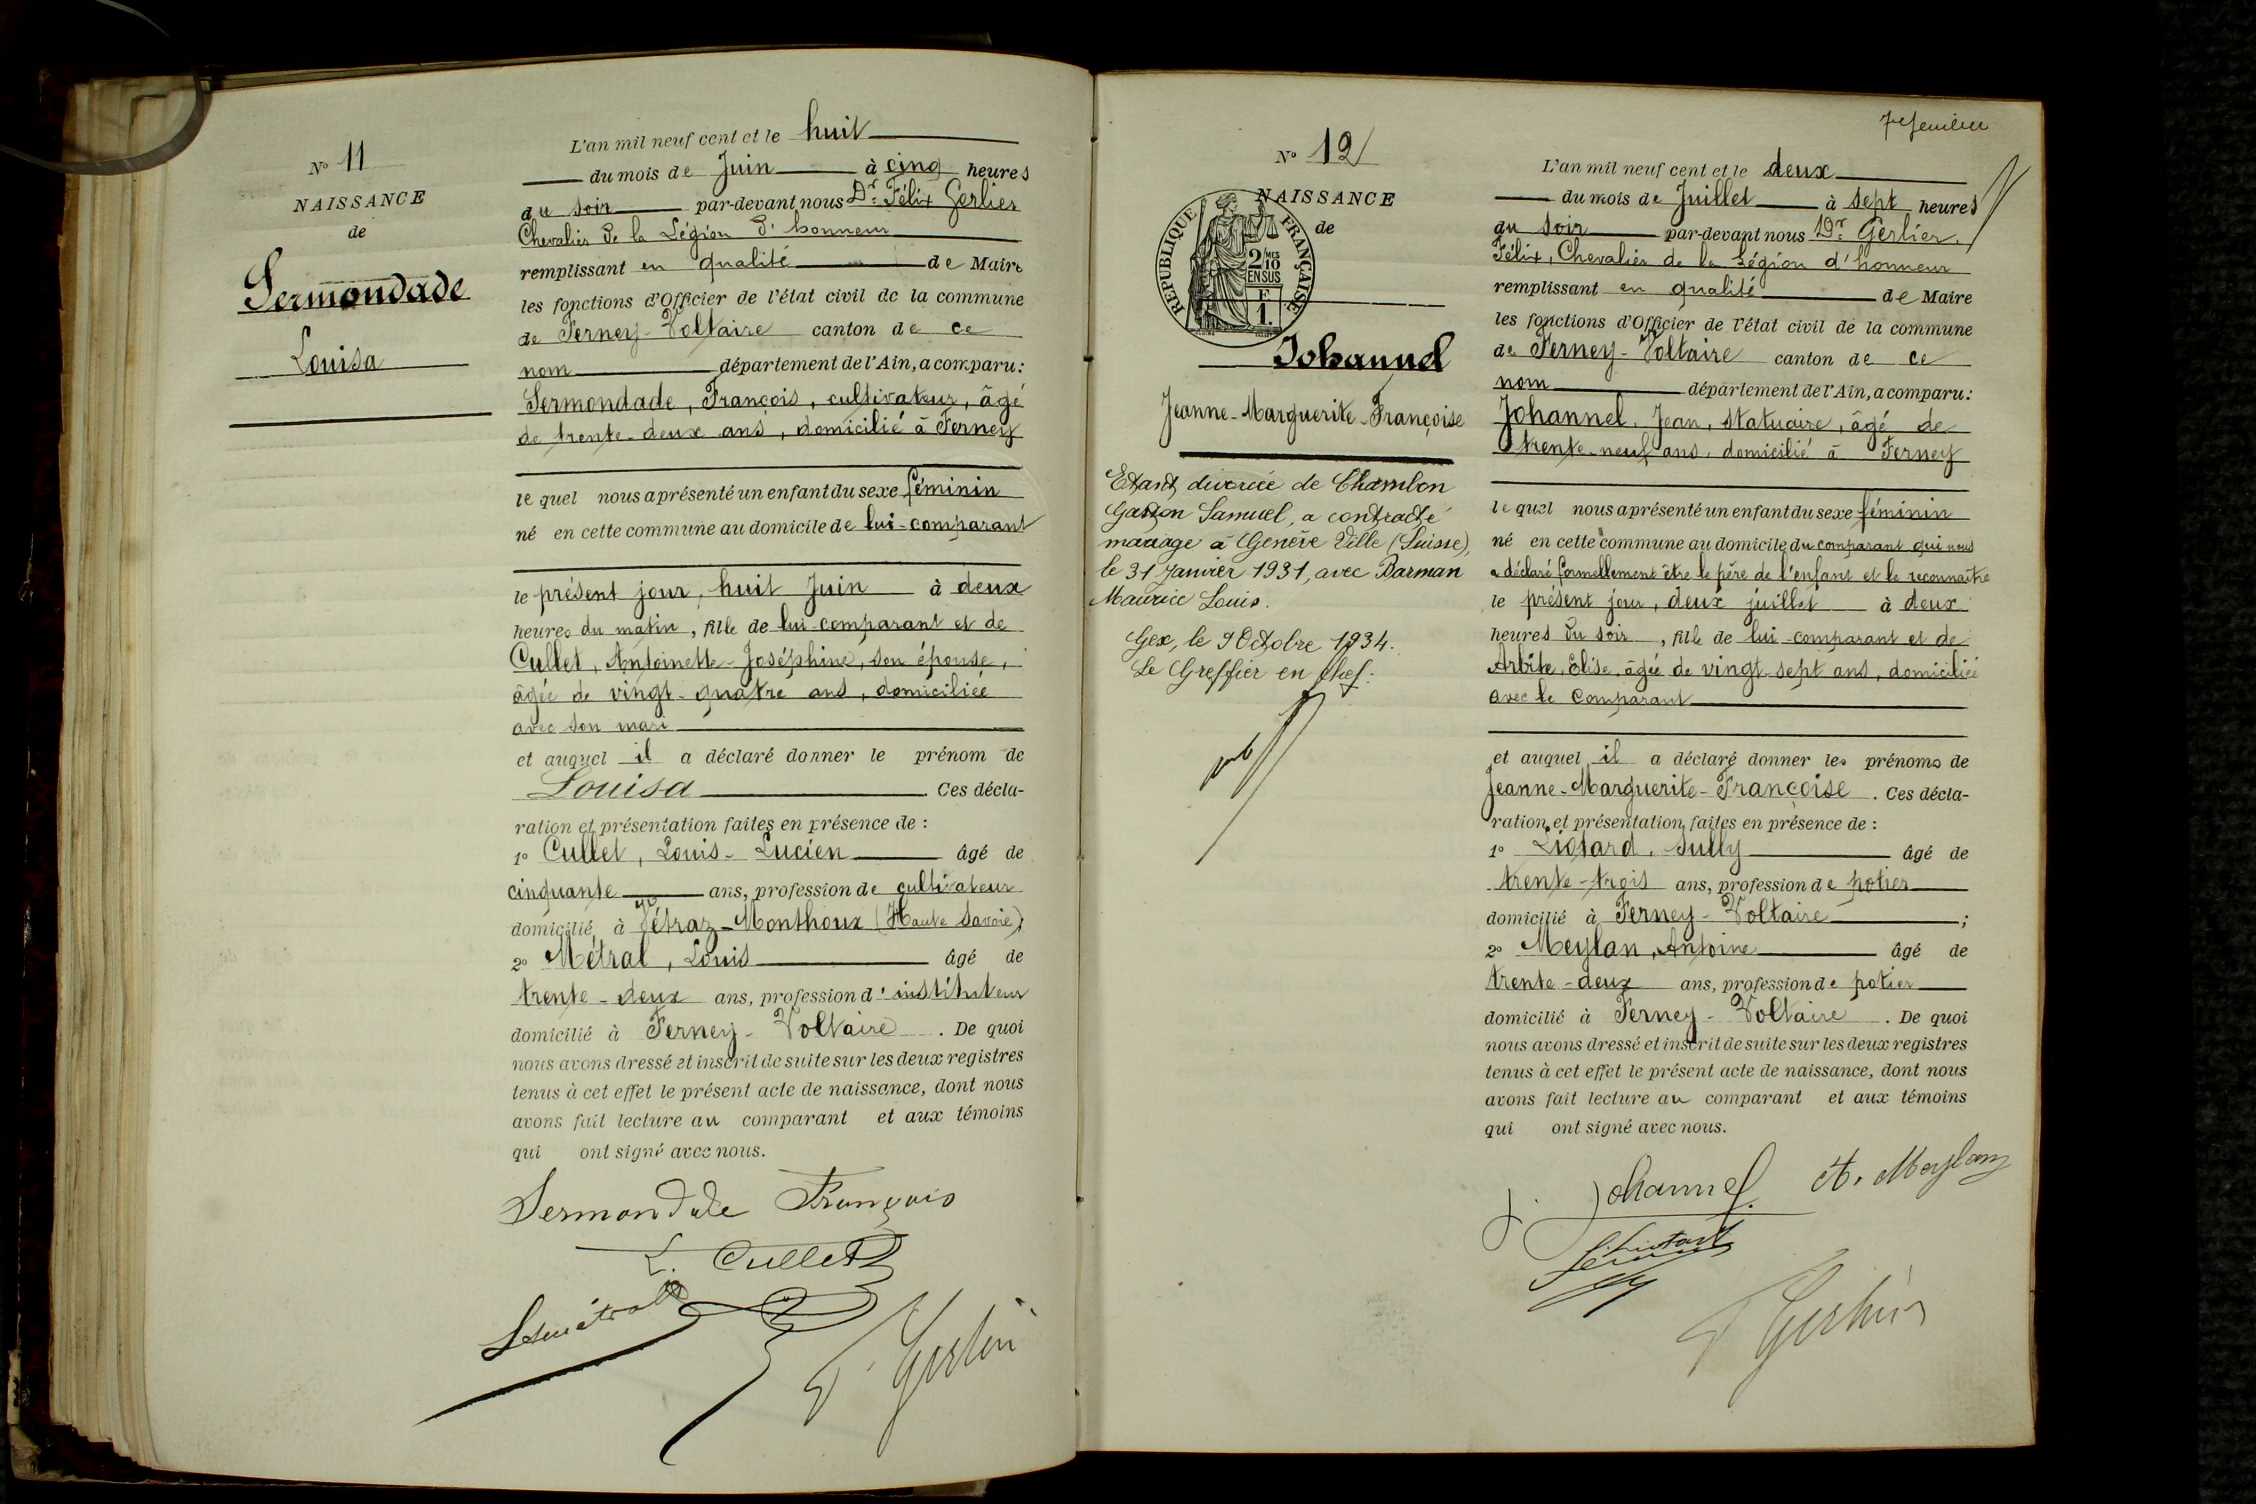 N° 11
NAISSANCE
de
Sermondade
Louisa
L'an mil neuf cent et le huit
du mois de Juin à cinq heures
du soir par-devant nous Dr Félix Gerlier
Chevalier de la Légion d'honneur
remplissant en qualité de Maire
les fonctions d'Officier de l'état civil de la commune
de Ferney-Voltaire canton de ce
nom département de l'Ain, a comparu:
Sermondade, François, cultivateur, âgé
de trente-deux ans, domicilié à Ferney
lequel nous a présenté un enfant du sexe féminin
né en cette commune au domicile de lui-comparant
le présent jour, huit Juin à deux
heures du matin, fille de lui-comparant et de
Cullet, Antoinette-Joséphine, son épouse,
âgée de vingt-quatre ans, domiciliée
avec son mari
et auquel il a déclaré donner le prénom de
Louisa. Ces décla-
ration et présentation faites en présence de :
1° Cullet, Louis-Lucien âgé de
cinquante ans, profession de cultivateur
domicilié à Vétraz-Monthoux (Haute Savoie);
2° Métral, Louis âgé de
trente-deux ans, profession d'instituteur
domicilié à Ferney-Voltaire. De quoi
nous avons dressé et inscrit de suite sur les deux registres
tenus à cet effet le présent acte de naissance, dont nous
avons fait lecture au comparant et aux témoins
qui ont signé avec nous.
Sermondade François
L. Cullet
L. Métral
Dr Gerlier
N° 12
NAISSANCE
de
REPUBLIQUE FRANÇAISE
2/10 MES
EN SUS
F
1.
Johannel
Jeanne-Marguerite-Françoise
Etant divorcée de Chambon
Gaston Samuel, a contracté
mariage à Genève Ville (Suisse),
le 31 Janvier 1931, avec Barman
Maurice Louis.
Gex, le 9 Octobre 1934.
Le Greffier en Chef:
L'an mil neuf cent et le deux
du mois de Juillet à sept heures
du soir par-devant nous Dr Gerlier,
Félix, Chevalier de la Légion d'honneur
remplissant en qualité de Maire
les fonctions d'Officier de l'état civil de la commune
de Ferney-Voltaire canton de ce
nom département de l'Ain, a comparu:
Johannel, Jean, statuaire, âgé de
trente-neuf ans, domicilié à Ferney
lequel nous a présenté un enfant du sexe féminin
né en cette commune au domicile du comparant qui nous
a déclaré formellement être le père de l'enfant et le reconnaître
le présent jour, deux juillet à deux
heures du soir, fille de lui-comparant et de
Arbite, Elise, âgée de vingt-sept ans, domiciliée
avec le comparant
et auquel il a déclaré donner les prénoms de
Jeanne-Marguerite-Françoise. Ces décla-
ration et présentation faites en présence de :
1° Liotard, Sully âgé de
trente-trois ans, profession de potier
domicilié à Ferney-Voltaire ;
2° Meylan, Antoine âgé de
trente-deux ans, profession de potier
domicilié à Ferney-Voltaire. De quoi
nous avons dressé et inscrit de suite sur les deux registres
tenus à cet effet le présent acte de naissance, dont nous
avons fait lecture au comparant et aux témoins
qui ont signé avec nous.
J. Johannel A. Meylan
S. Liotard
Dr Gerlier